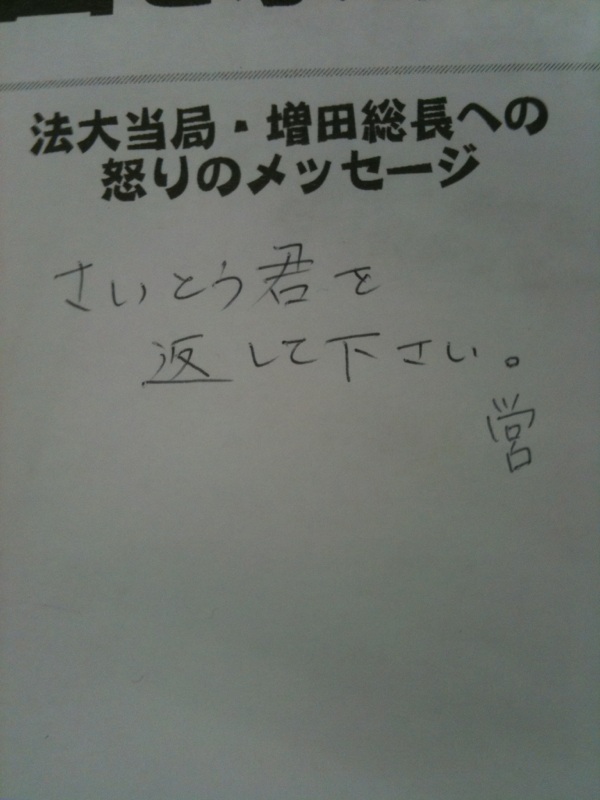 法大当局・増田総長への
怒りのメッセージ
さいとう君を
返して下さい。
営